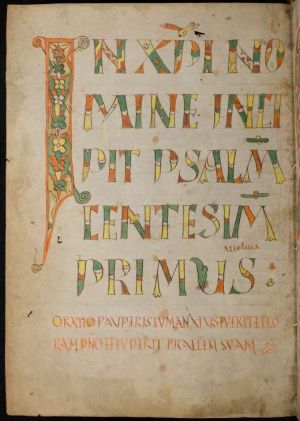 IN XPI NO
MINE INCI
PIT PSALM
CENTESIM
PRIMUS :
ORATIO PAUPERIS CUM ANXIUS FUERIT ET CO
RAM DNO EFFUDERIT PRAECEM SUAM